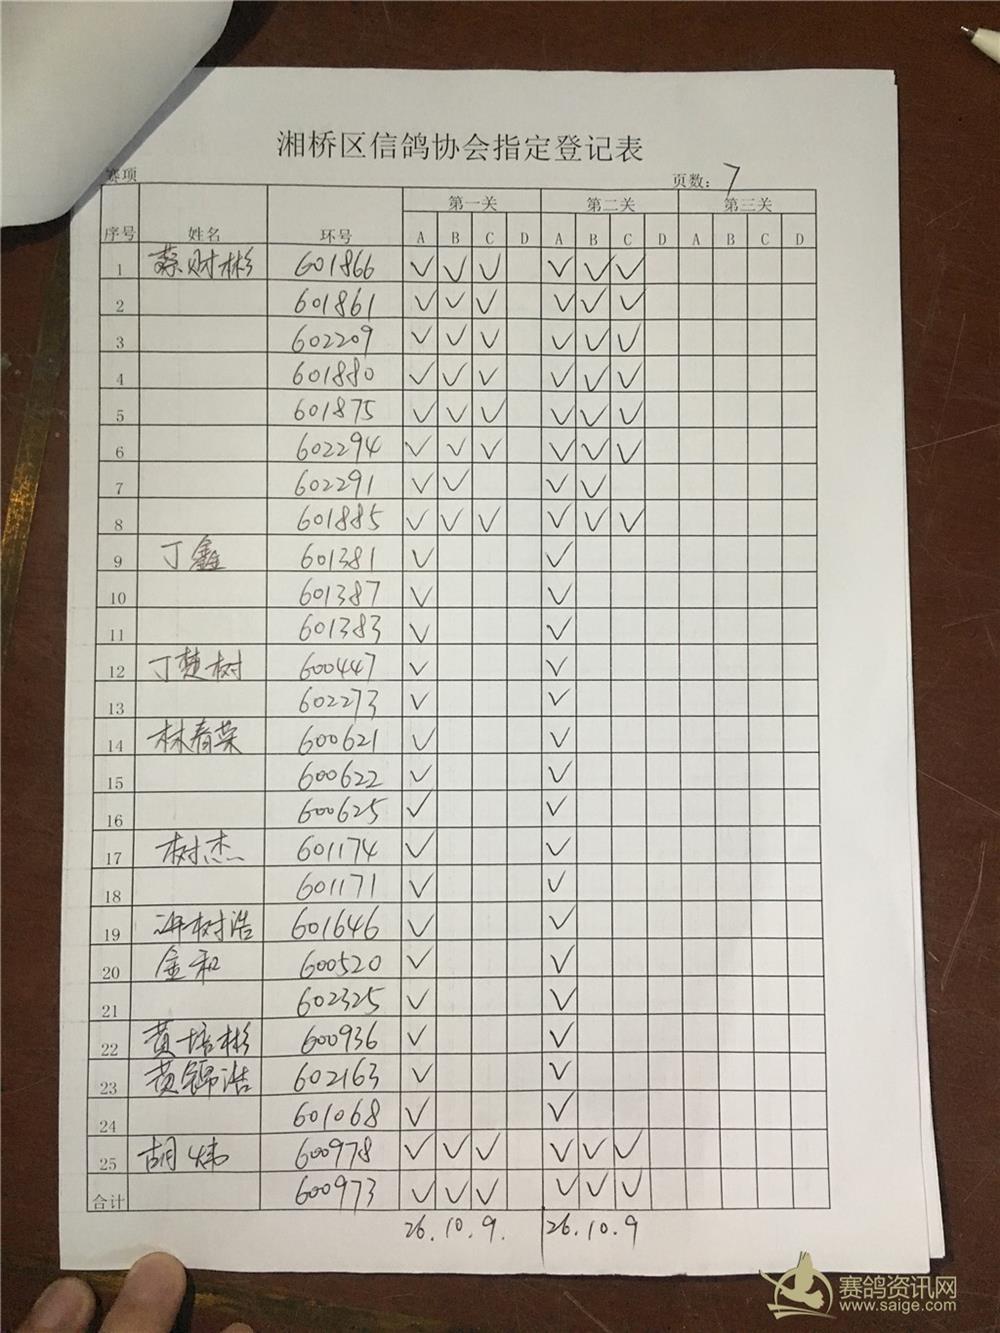 湘桥区信鸽协会指定登记表
赛项 页数: 7
第一关 第二关 第三关
序号 姓名 环号 A B C D A B C D A B C D
1 蔡财彬 601866 ✓ ✓ ✓ ✓ ✓ ✓
2 601861 ✓ ✓ ✓ ✓ ✓ ✓
3 602209 ✓ ✓ ✓ ✓ ✓ ✓
4 601880 ✓ ✓ ✓ ✓ ✓ ✓
5 601875 ✓ ✓ ✓ ✓ ✓ ✓
6 602294 ✓ ✓ ✓ ✓ ✓ ✓
7 602291 ✓ ✓ ✓ ✓
8 601885 ✓ ✓ ✓ ✓ ✓ ✓
9 丁鑫 601381 ✓ ✓
10 601387 ✓ ✓
11 601383 ✓ ✓
12 丁楚树 600447 ✓ ✓
13 602273 ✓ ✓
14 林春荣 600621 ✓ ✓
15 600622 ✓ ✓
16 600625 ✓ ✓
17 树杰 601174 ✓ ✓
18 601171 ✓ ✓
19 树浩 601646 ✓ ✓
20 金和 600520 ✓ ✓
21 602325 ✓ ✓
22 黄培彬 600936 ✓ ✓
23 黄锦浩 602163 ✓ ✓
24 601068 ✓ ✓
25 胡炜 600978 ✓ ✓ ✓ ✓ ✓ ✓
合计 600973 ✓ ✓ ✓ ✓ ✓ ✓
26.10.9. 26.10.9
赛鸽资讯网
www.saige.com